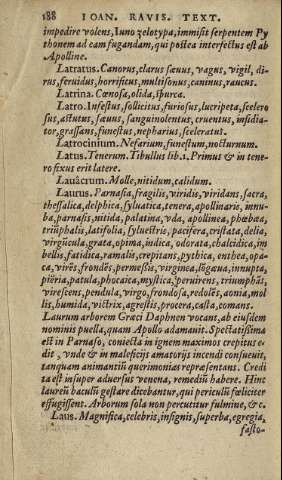 188 IOAN. RAVIS. TEXT.
impedire volens, Iuno zelotypa, immisit serpentem Py
thonem ad eam fugandam, qui postea interfectus est ab
Apolline.
Latratus. Canorus, clarus sæuus, vagus, vigil, di-
rus, feruidus, horrificus, multisonus, caninus, raucus.
Latrina. Cœnosa, olida, spurca.
Latro. Infestus, sollicitus, furiosus, lucripeta, scelero
sus, astutus, sæuus, sanguinolentus, cruentus, insidia-
tor, grassans, funestus, nepharius, sceleratus.
Latrocinium. Nefarium, funestum, nocturnum.
Latus. Tenerum. Tibullus lib. 1. Primus & in tene-
ro fixus erit latere.
Lauâcrum. Molle, nitidum, calidum.
Laurus. Parnasia, fragilis, viridis, viridans, sacra,
thessalica, delphica, syluatica, tenera, apollinaris, innu-
ba, parnasis, nitida, palatina, vda, apollinea, phœbæa,
triũphalis, latifolia, syluestris, pacifera, cristata, delia,
virgũcula, grata, opima, indica, odorata, chalcidica, im
bellis, fatidica, ramalis, crepitans, pythica, enthea, opa-
ca, virẽs, frondẽs, permessis, virginea, lõgæua, innupta,
pieria, patula, phocaica, mystica, peruirens, triumphãs,
virescens, pendula, virgo, frondosa, redolẽs, aonia, mol
lis, humida, victrix, agrestis, procera, casta, comans.
Laurum arborem Græci Daphnen vocant, ab eiusdem
nominis puella, quam Apollo adamauit. Spectatissima
est in Parnaso, coniecta in ignem maximos crepitus e-
dit, vnde & in maleficijs amatorijs incendi consueuit,
tanquam animantiũ querimonias repræsentans. Credi
ta est insuper aduersus venena, remediũ habere. Hinc
laureũ baculũ gestare dicebantur, qui periculũ fœliciter
effugissent. Arborum sola non percutitur fulmine, &c.
Laus. Magnifica, celebris, insignis, superba, egregia,
fasto-